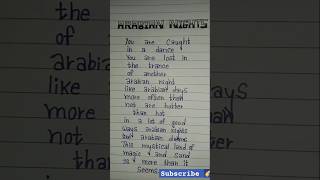 ARABIAN NIGHTS
You are Caught
in a dance
You are lost in
the trance
of another
arabian night
like arabian days
more often than
not are hotter
than hot
in a lot of good
ways arabian nights
arabian
This mystical land of
magic and sand
is more than it
seems
Subscribe